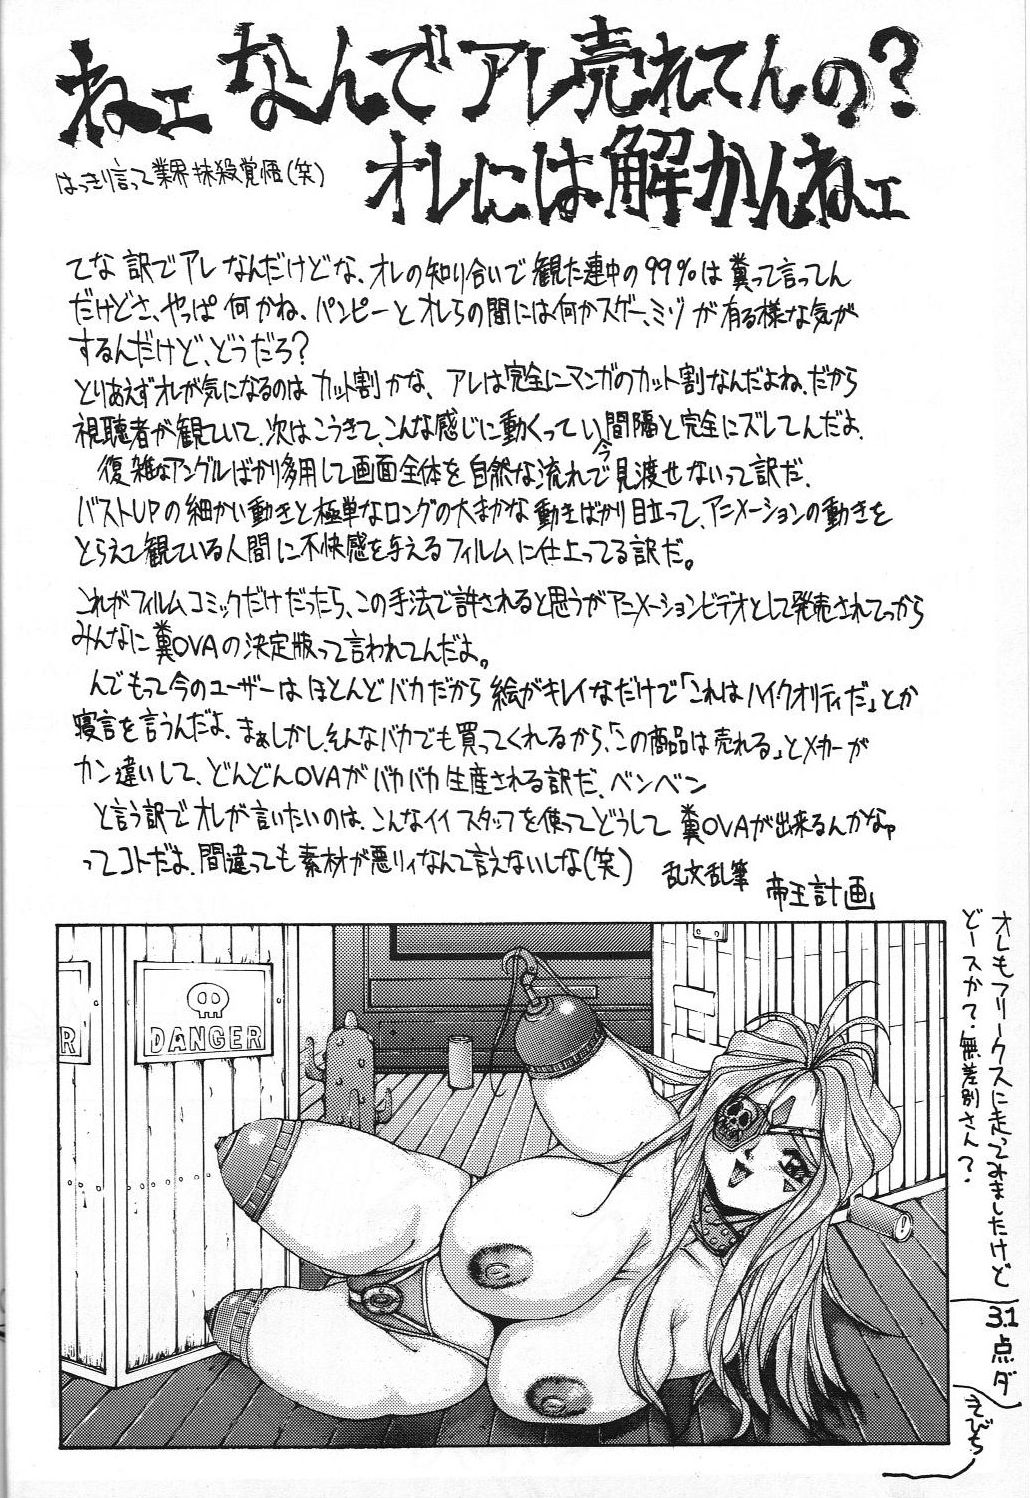 ねェ なんでアレ売れてんの?
オレには解かんねェ
はっきり言って業界抹殺覚悟(笑)
てな訳でアレなんだけどな、オレの知り合いで観た連中の99%は糞って言ってん
だけどさ、やっぱ何かね、パンピーとオレらの間には何かスゲー、ミゾが有る様な気が
するんだけど、どうだろ?
とりあえずオレが気になるのはカット割かな、アレは完全にマンガのカット割なんだよね、だから
視聴者が観ていて、次はこうきて、こんな感じに動くってい間隔と完全にズレてんだよ、
復雑なアングルばかり多用して画面全体を自然な流れで今見渡せないって訳だ、
バストUPの細かい動きと極単なロングの大まかな動きばかり目立って、アニメーションの動きを
とらえて観ている人間に不快感を与えるフィルムに仕上ってる訳だ。
これがフィルムコミックだけだったら、この手法で許されると思うがアニメーションビデオとして発売されてっから
みんなに糞OVAの決定版って言われてんだよ。
んでもって今のユーザーはほとんどバカだから絵がキレイなだけで「これはハイクオリティだ」とか
寝言を言うんだよ、まぁしかし、そんなバカでも買ってくれるから、「この商品は売れる」とメーカーが
カン違いして、どんどんOVAがバカバカ生産される訳だ、ベンベン
と言う訳でオレが言いたいのは、こんなイイスタッフを使ってどうして糞OVAが出来るんかなァ
ってコトだよ、間違っても素材が悪りィなんて言えないしな(笑)
乱文乱筆 帝王計画
R
DANGER
!
オレもフリークスに走ってみましたけど
どースかて・無差別さん?
31点ダ
えびち